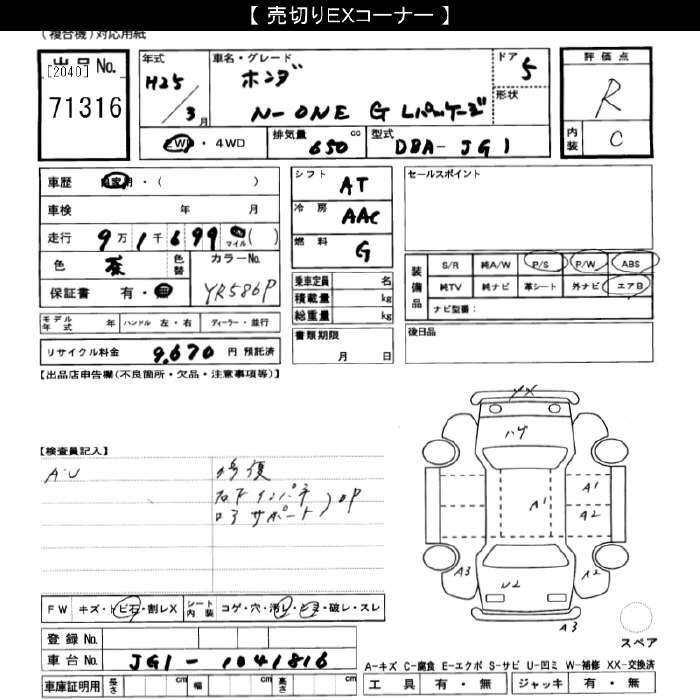 【 売切りEXコーナー 】
(複合機)対応用紙
出品No.
[2040]
71316
年式
H25/3月
車名・グレード
ホンダ
N-ONE G Lパッケージ
ドア
5
形状
評価点
R
内装 C
2WD・4WD
排気量 650 cc
型式 DBA- JG1
車歴 自家用・( )
車検 年 月
走行 9万1千699 マイル( )
色 茶 色替
カラーNo.
YR586P
保証書 有・無
モデル年式 年 ハンドル 左・右 ディーラー・並行
リサイクル料金 9,670 円 預託済
シフト AT
冷房 AAC
燃料 G
乗車定員 名
積載量 kg
総重量 kg
書類期限
月 日
セールスポイント
装備品
S/R 純A/W P/S P/W ABS
純TV 純ナビ 革シート 外ナビ エアB
ナビ型番:
後日品
【出品店申告欄(不良箇所・欠品・注意事項等)】
【検査員記入】
A・U
修復
右下インパネ
ロアサポート)OP
XX
ハゲ
A1
A1
A2
A3
U2
A2
A3
スペア
FW キズ・トビ石・割レX
シート内装 コゲ・穴・汚レ・シミ・破レ・スレ
登録No.
車台No. JG1-1041816
車庫証明用 長さ cm 幅 cm 高さ cm
A-キズ C-腐食 E-エクボ S-サビ U-凹ミ W-補修 XX-交換済
工具 有・無 ジャッキ 有・無